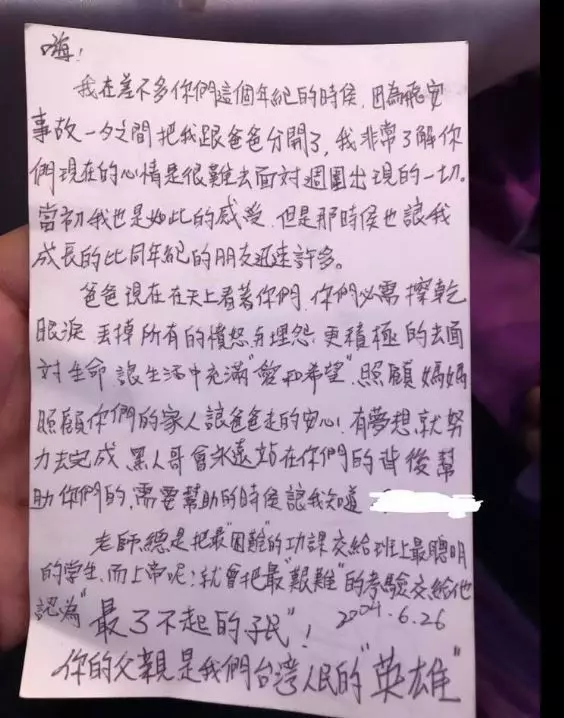 嗨!
我在差不多你們這個年紀的時候,因為飛安
事故一夕之間把我跟爸爸分開了,我非常了解你
們現在的心情是很難去面對週圍出現的一切。
當初我也是如此的感受,但是那時候也讓我
成長的比同年紀的朋友迅速許多。
爸爸現在在天上看著你們,你們必需擦乾
眼淚 丟掉所有的憤怒与埋怨,更積極的去面
對生命,讓生活中充滿"愛和希望",照顧媽媽
照顧你們的家人讓爸爸走的安心!有夢想,就努
力去完成,黑人哥會永遠站在你們的背後幫
助你們的,需要幫助的時候讓我知道
老師總是把最"困難"的功課交給班上最聰明
的學生,而上帝呢?就會把最"艱難"的考驗交給他
認為"最了不起的子民"! 2004.6.26
你的父親是我們台灣人民的"英雄"